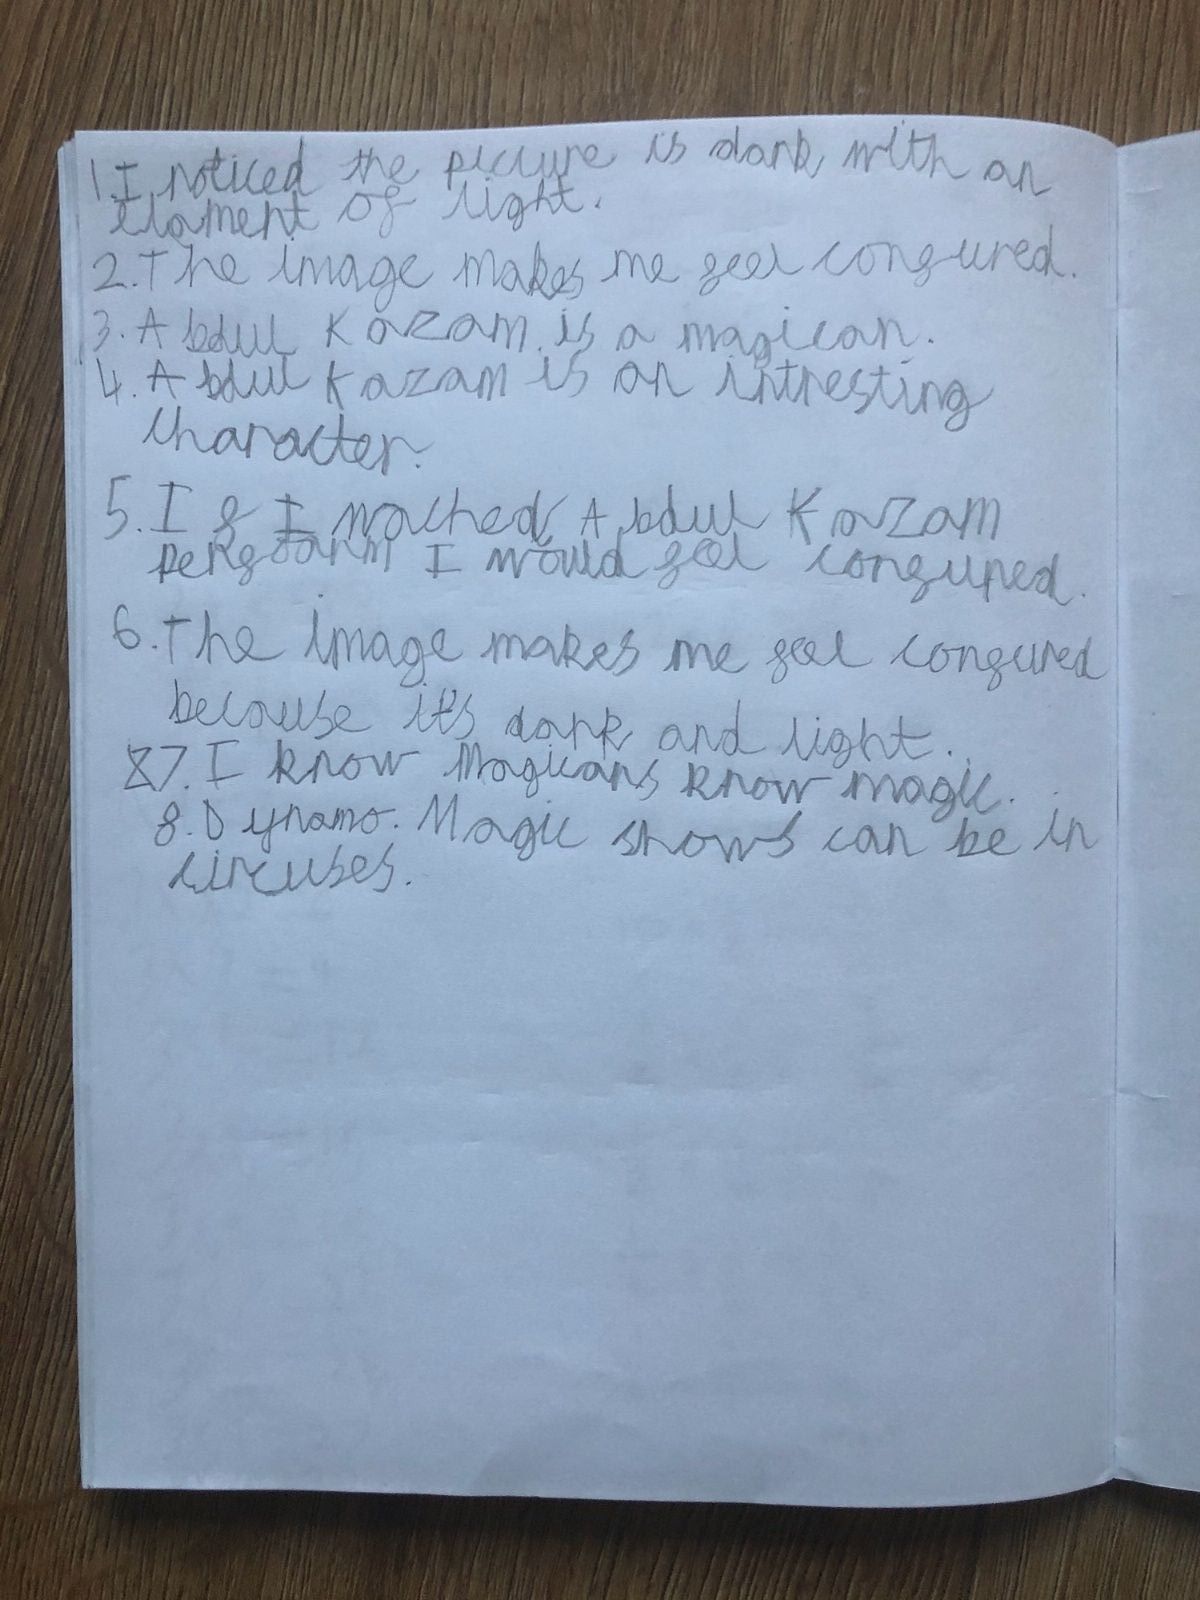 1. I noticed the picture is dark with an
elament of light.
2. The image makes me feel confured.
3. Abdul Kazam is a magican.
4. Abdul Kazam is an intresting
character.
5. If I wached Abdul Kazam
perfoarm I would feel confured.
6. The image makes me feel confured
because it's dark and light.
7. I know Magicans know magic.
8. Dynamo. Magic shows can be in
circuses.